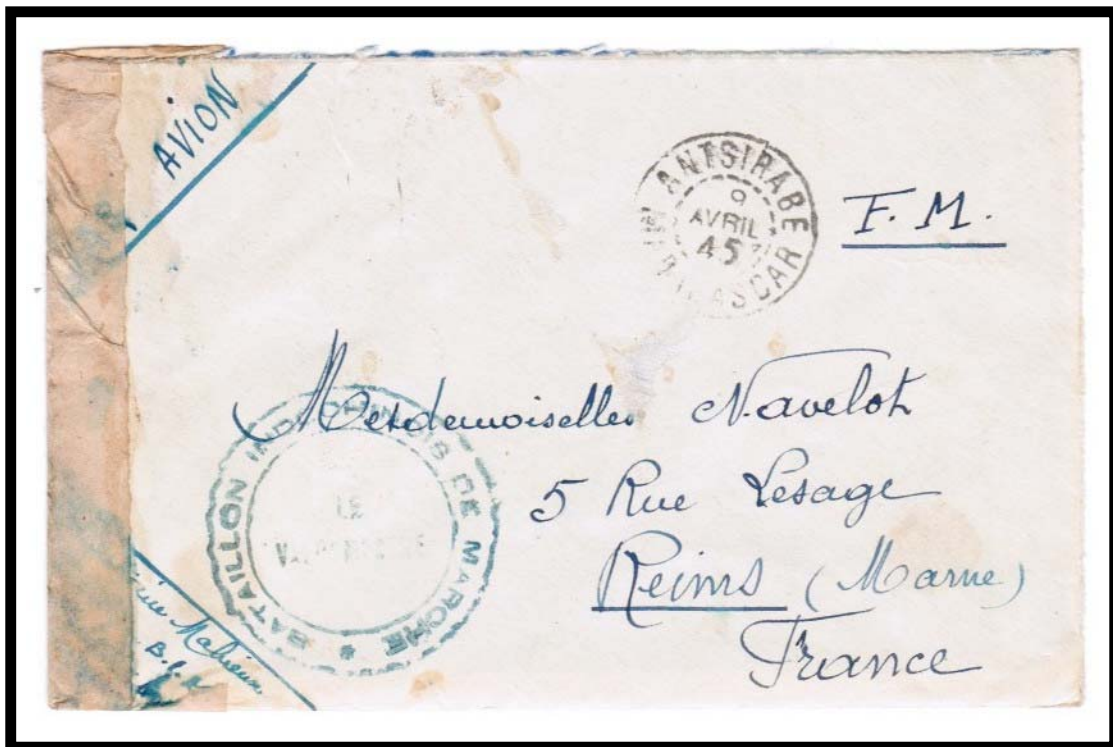 AVION
ANTSIRABE
9
AVRIL
45
MADAGASCAR
F. M.
Mesdemoiselles Navelot
5 Rue Lesage
Reims (Marne)
France
BATAILLON INDOCHINOIS DE MARCHE
LE